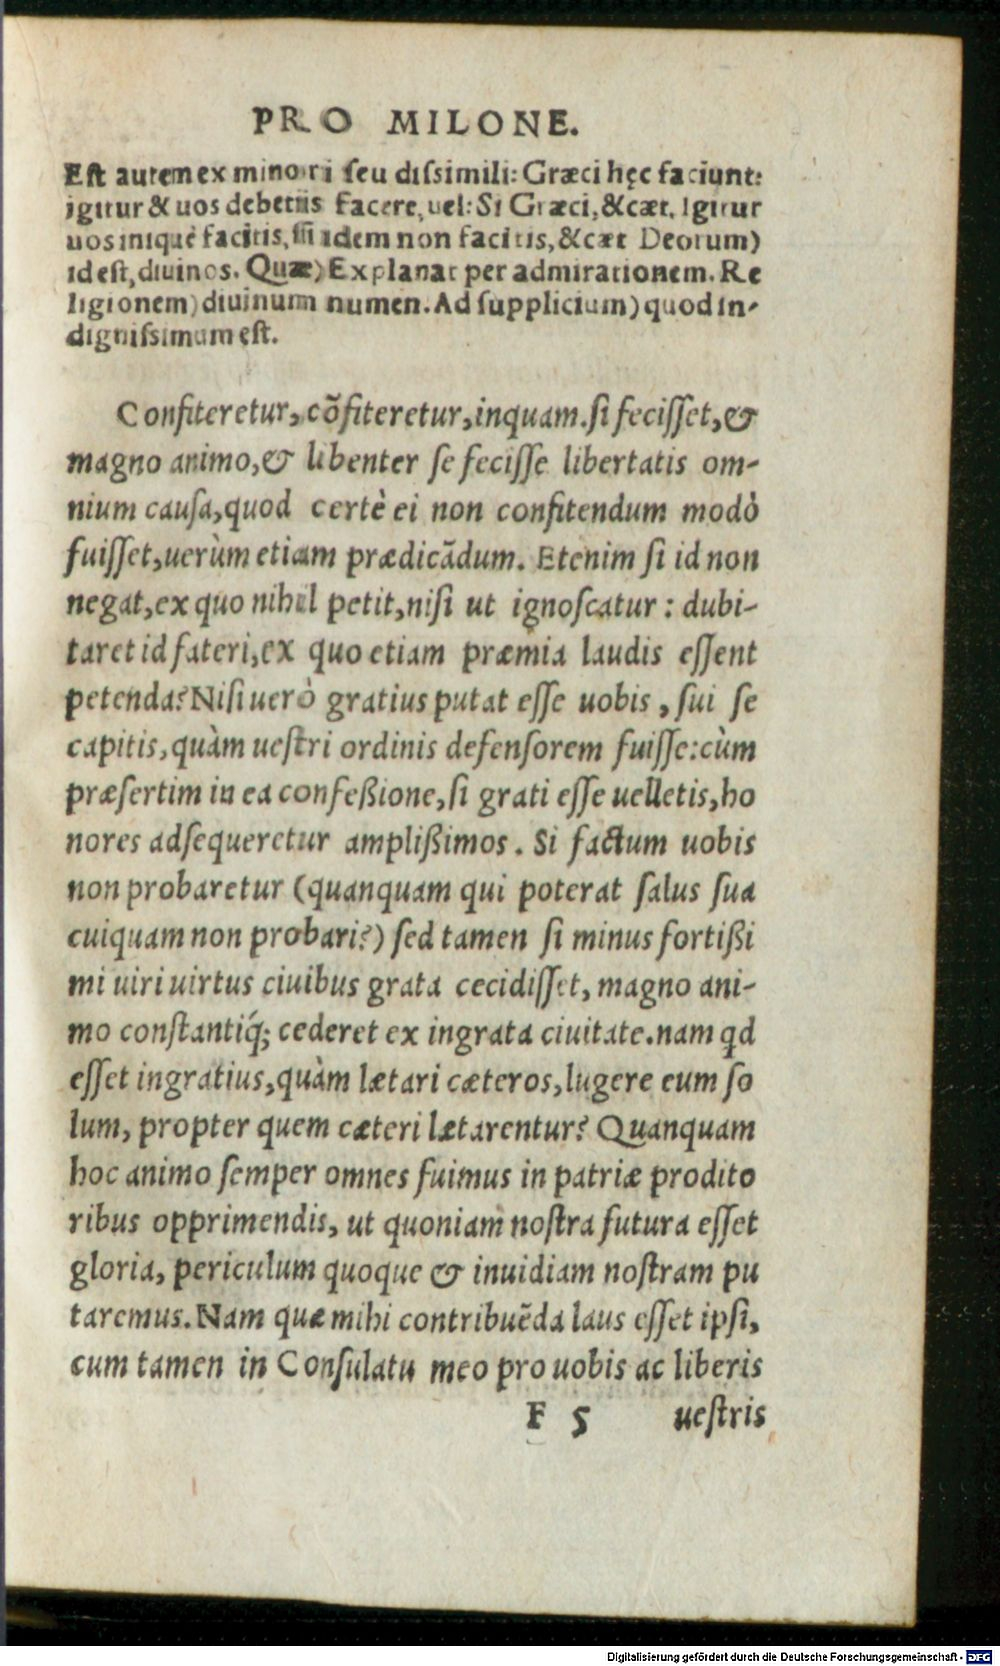 PRO MILONE.
Est autem ex minori seu dissimili: Græci hęc faciunt:
igitur & uos debetis facere, uel: Si Græci, &cæt. Igitur
uos iniquè facitis, si idem non facitis, &cæt Deorum)
id est, diuinos. Quæ) Explanat per admirationem. Re
ligionem) diuinum numen. Ad supplicium) quod in-
dignissimum est.
Confiteretur, cõfiteretur, inquam. si fecisset, &
magno animo, & libenter se fecisse libertatis om-
nium causa, quod certè ei non confitendum modò
fuisset, uerùm etiam prædicãdum. Etenim si id non
negat, ex quo nihil petit, nisi ut ignoscatur: dubi-
taret id fateri, ex quo etiam præmia laudis essent
petenda? Nisi uerò gratius putat esse uobis, sui se
capitis, quàm uestri ordinis defensorem fuisse: cùm
præsertim in ea confeßione, si grati esse uelletis, ho
nores adsequeretur amplißimos. Si factum uobis
non probaretur (quanquam qui poterat salus sua
cuiquam non probari?) sed tamen si minus fortißi
mi uiri uirtus ciuibus grata cecidisset, magno ani-
mo constantiq́; cederet ex ingrata ciuitate. nam qd
esset ingratius, quàm lætari cæteros, lugere eum so
lum, propter quem cæteri lætarentur? Quanquam
hoc animo semper omnes fuimus in patriæ prodito
ribus opprimendis, ut quoniam nostra futura esset
gloria, periculum quoque & inuidiam nostram pu
taremus. Nam quæ mihi contribuẽda laus esset ipsi,
cum tamen in Consulatu meo pro uobis ac liberis
F 5 uestris
Digitalisierung gefördert durch die Deutsche Forschungsgemeinschaft - DFG